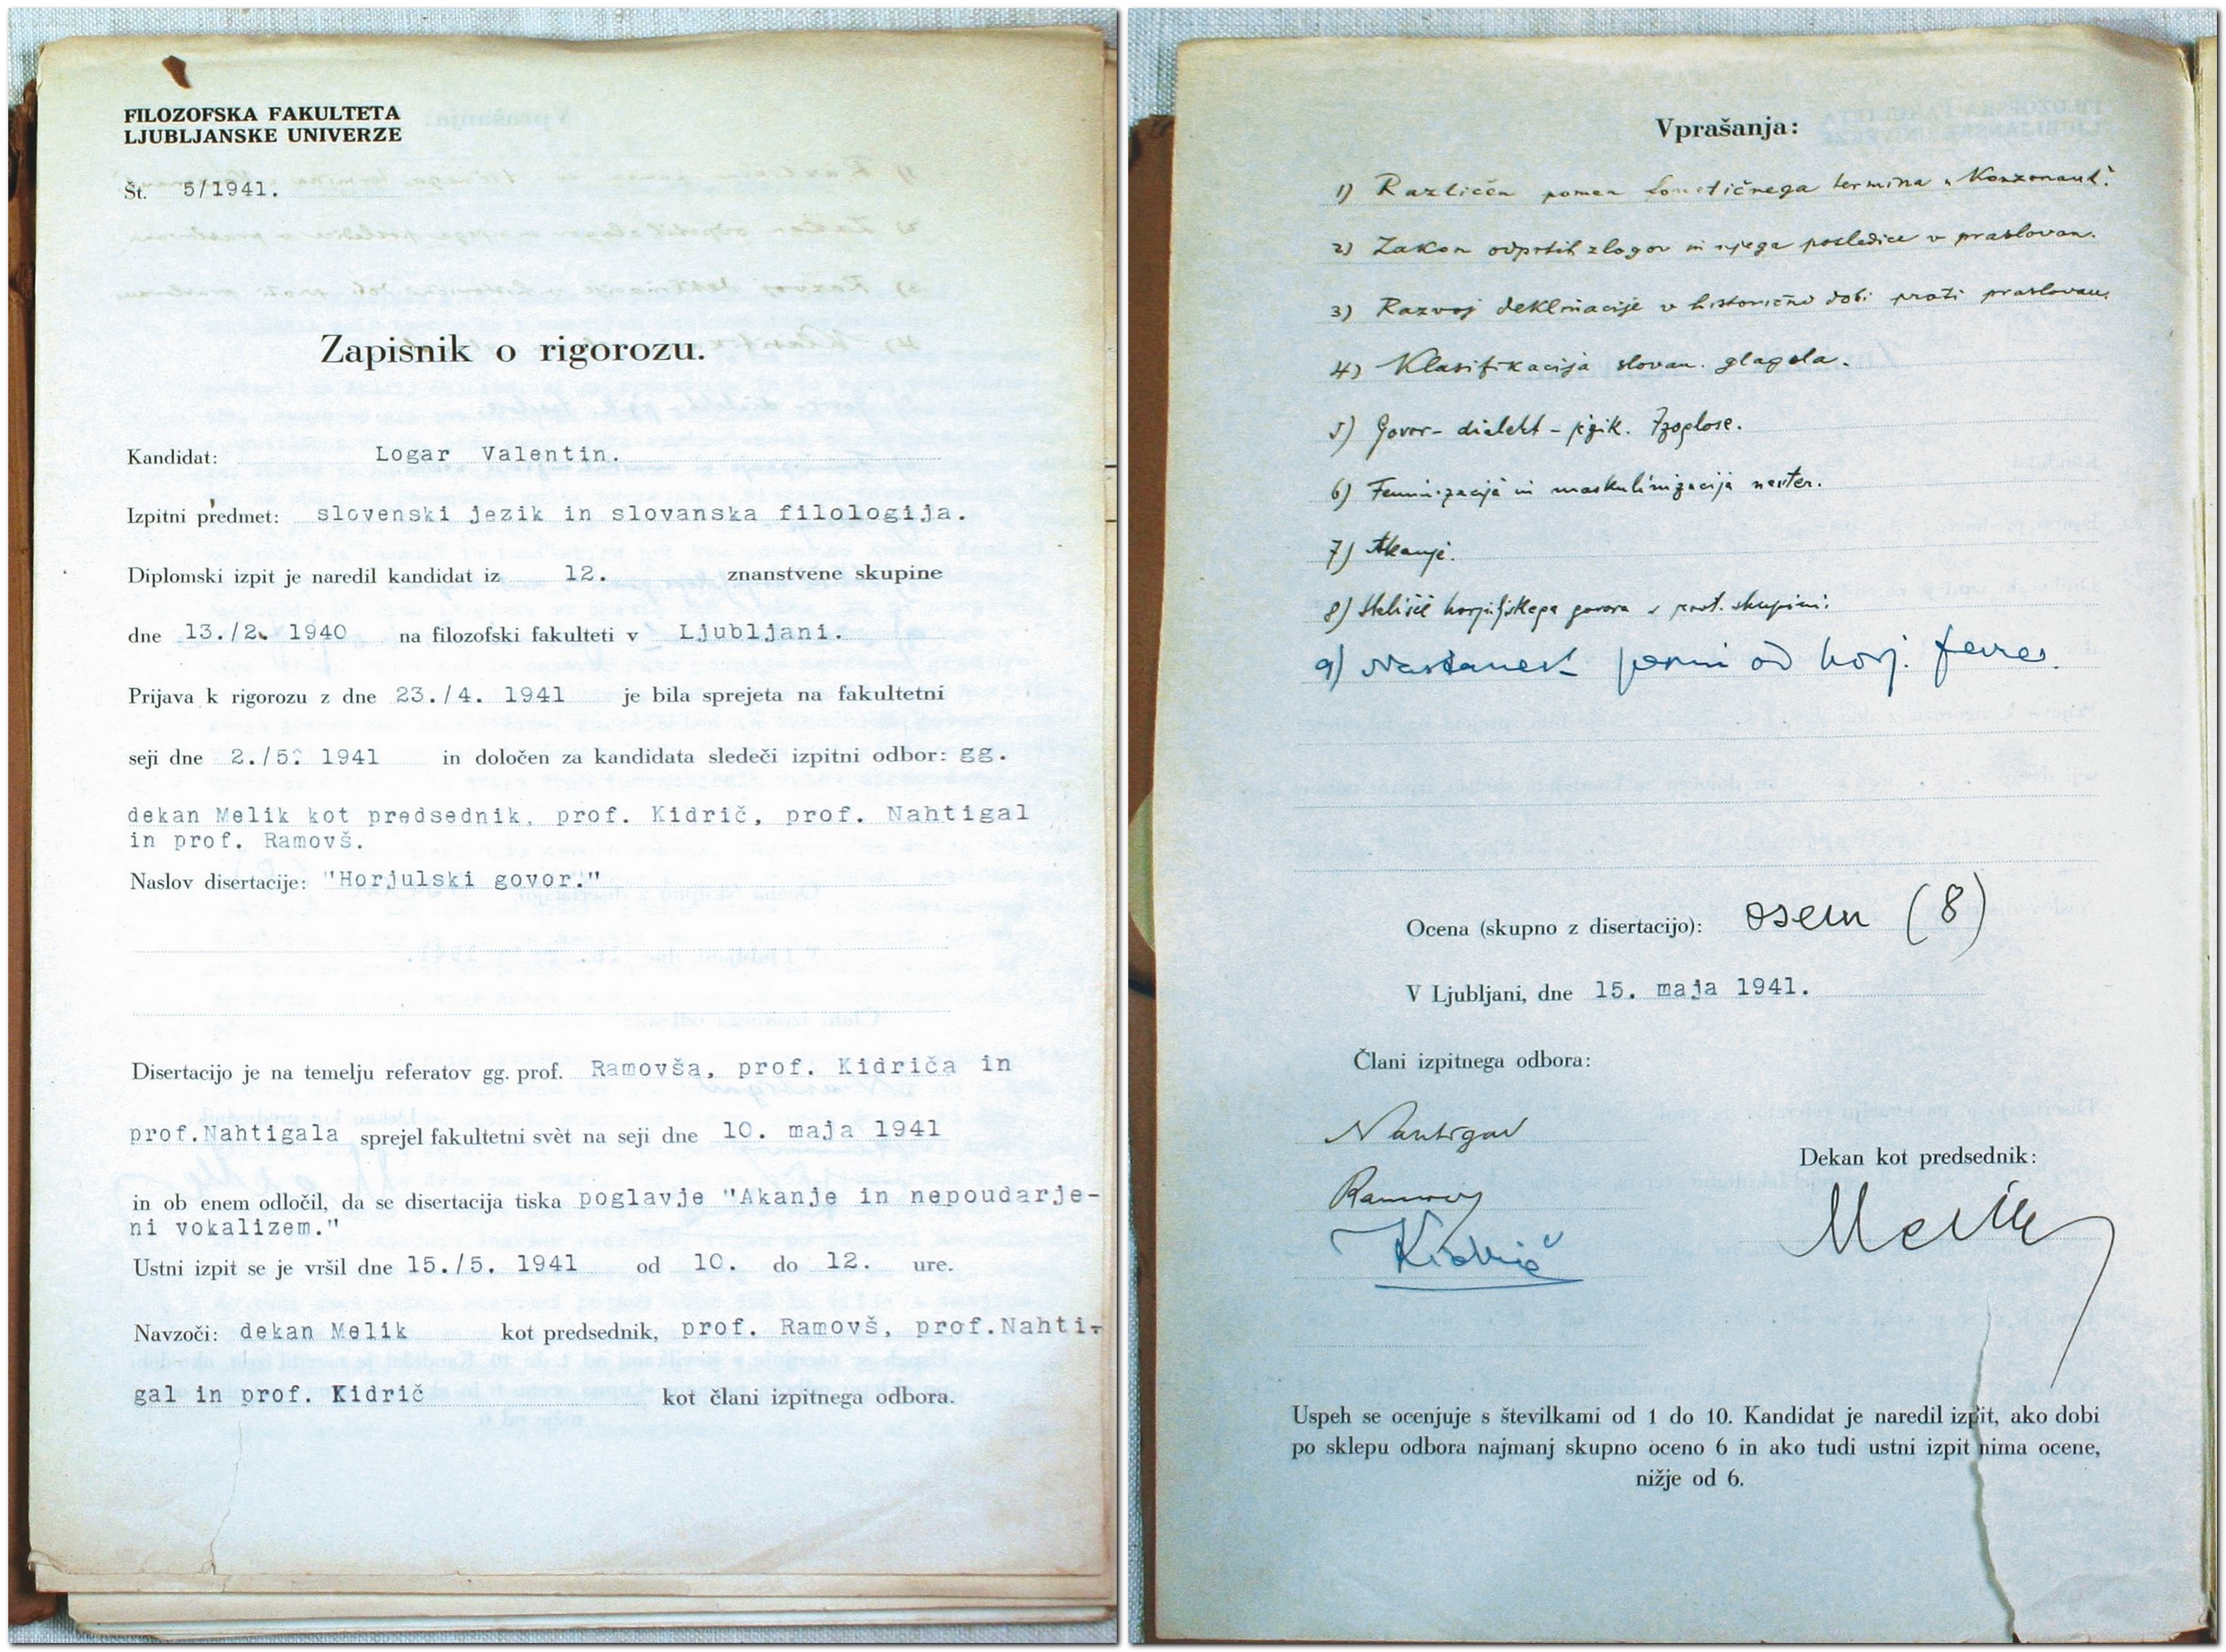 FILOZOFSKA FAKULTETA
LJUBLJANSKE UNIVERZE
Št. 5/1941.
Zapisnik o rigorozu.
Kandidat: Logar Valentin.
Izpitni predmet: slovenski jezik in slovanska filologija.
Diplomski izpit je naredil kandidat iz 12. znanstvene skupine
dne 13./2. 1940 na filozofski fakulteti v Ljubljani.
Prijava k rigorozu z dne 23./4. 1941 je bila sprejeta na fakultetni
seji dne 2./5. 1941 in določen za kandidata sledeči izpitni odbor: gg.
dekan Melik kot predsednik, prof. Kidrič, prof. Nahtigal
in prof. Ramovš.
Naslov disertacije: "Horjulski govor."
Disertacijo je na temelju referatov gg. prof. Ramovša, prof. Kidriča in
prof.Nahtigala sprejel fakultetni svèt na seji dne 10. maja 1941
in ob enem odločil, da se disertacija tiska poglavje "Akanje in nepoudarje-
ni vokalizem."
Ustni izpit se je vršil dne 15./5. 1941 od 10. do 12. ure.
Navzoči: dekan Melik kot predsednik, prof. Ramovš, prof.Nahti-
gal in prof. Kidrič kot člani izpitnega odbora.
Vprašanja:
1) Različen pomen fonetičnega termina „Konzonant“.
2) Zakon odprtih zlogov in njega posledice v praslovan.
3) Razvoj deklinacije v historični dobi proti praslovan.
4) Klasifikacija slovan. glagola.
5) Govor - dialekt - jezik. Izoglose.
6) Feminizacija in maskulinizacija nevter.
7) Akanje.
8) Stališče horjulskega govora v rovt. skupini.
9) Nastanek pesmi od horj. fare.
Ocena (skupno z disertacijo): osem (8)
V Ljubljani, dne 15. maja 1941.
Člani izpitnega odbora:
Nahtigal
Ramovš
Kidrič
Dekan kot predsednik:
Melik
Uspeh se ocenjuje s številkami od 1 do 10. Kandidat je naredil izpit, ako dobi
po sklepu odbora najmanj skupno oceno 6 in ako tudi ustni izpit nima ocene,
nižje od 6.